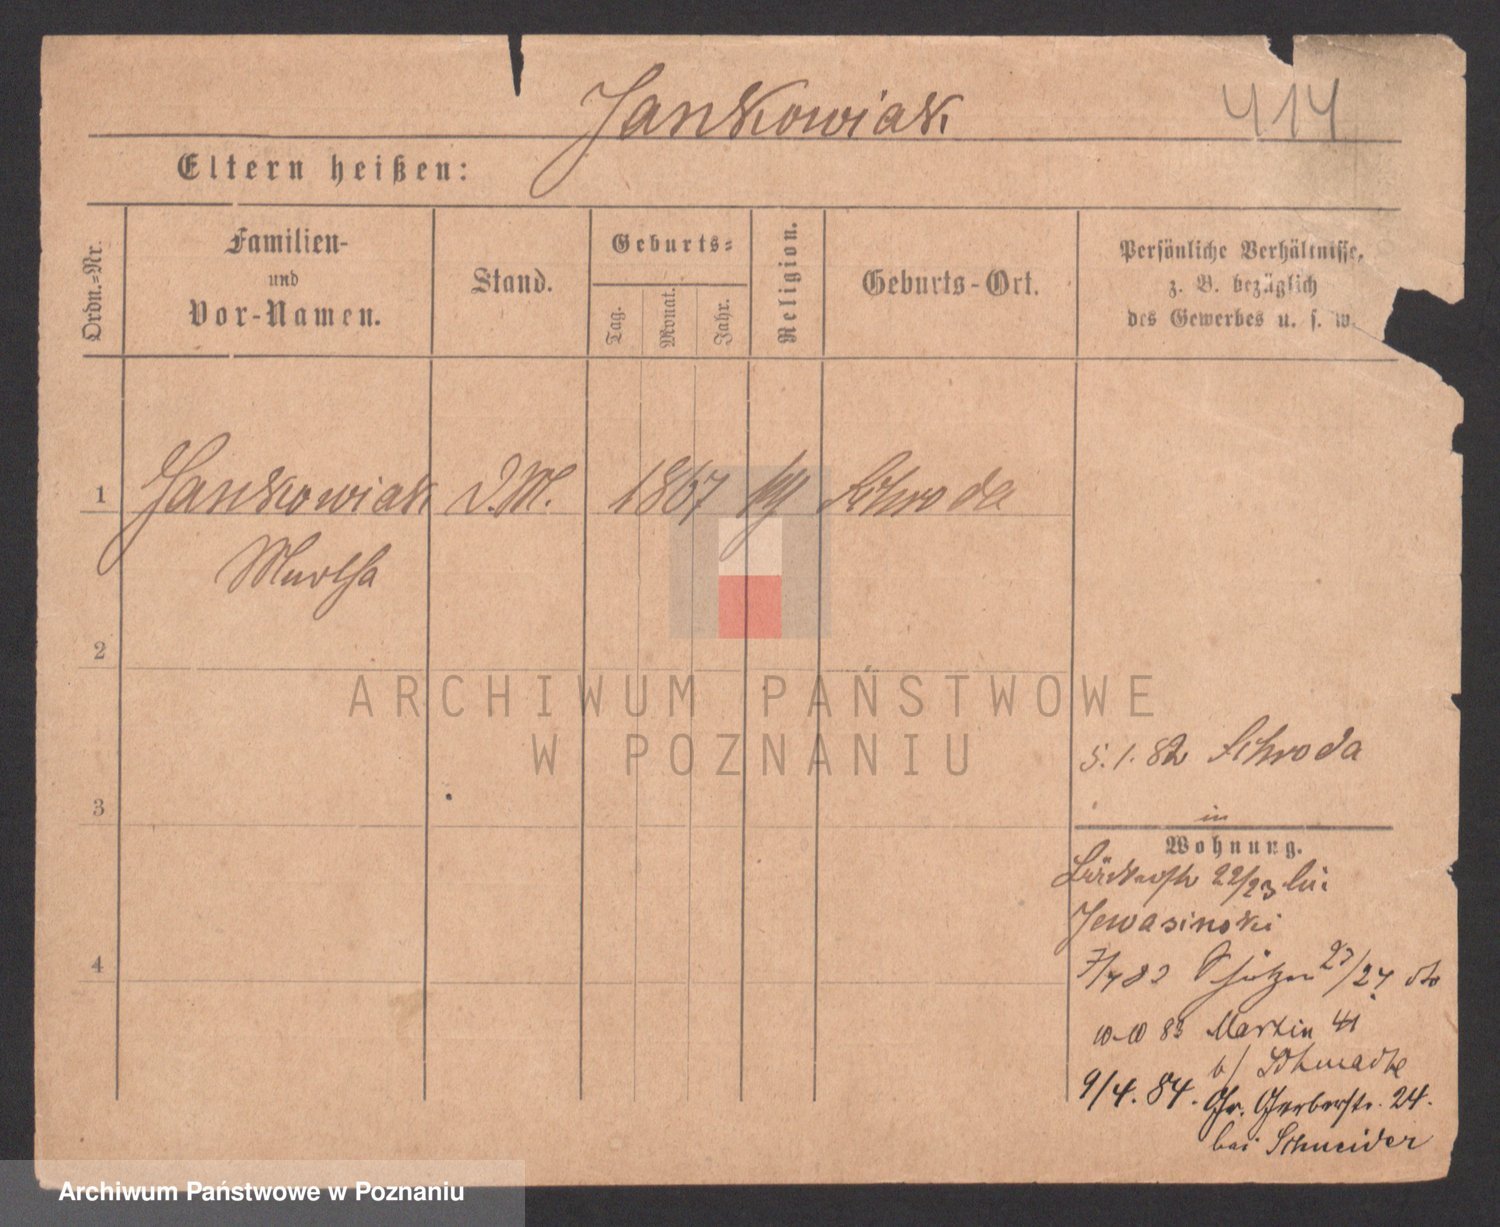 Jankowiak 414
Eltern heißen:
Ordn.=Nr.
Familien-
und
Vor-Namen.
Stand.
Geburts=
Tag.
Monat.
Jahr.
Religion.
Geburts-Ort.
Persönliche Verhältnisse,
z. B. bezüglich
des Gewerbes u. s. w.
1 Jankowiak D.M. 1867 Schroda
Martha
2
ARCHIWUM PAŃSTWOWE
W POZNANIU
5.1.82 Schroda
3
in
Wohnung.
22/23 bei
4
Schützen 23/24
83 Martin 41
b/
9/4. 84. Gr. Gerberstr. 24.
bei Schneider
Archiwum Państwowe w Poznaniu